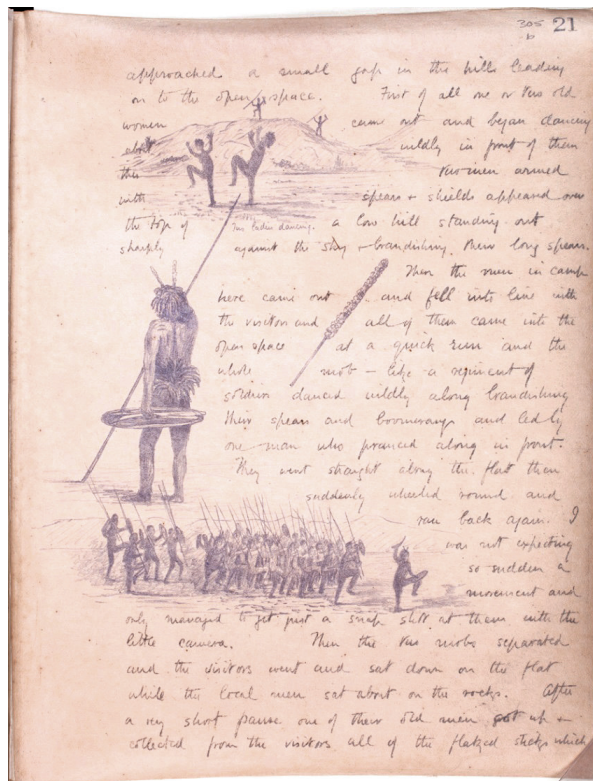 305
b
21
approached a small gap in the hills leading
on to the open space. First of all one or two old
women came out and began dancing
about wildly in front of them
then two men armed
with spears & shields appeared over
the top of a low hill standing out
Two ladies dancing.
sharply against the sky & brandishing their long spears.
Then the men in camp
here came out and fell into line with
the visitors and all of them came into the
open space at a quick run and the
whole mob – like a regiment of
soldiers danced wildly along brandishing
their spears and boomerangs and led by
one man who pranced along in front.
They went straight along the flat then
suddenly wheeled round and
ran back again. I
was not expecting
so sudden a
movement and
only managed to get just a snap shot at them with the
little camera. Then the two mobs separated
and the visitors went and sat down on the flat
while the local men sat about on the rocks. After
a very short pause one of their old men got up &
collected from the visitors all of the flaked sticks which